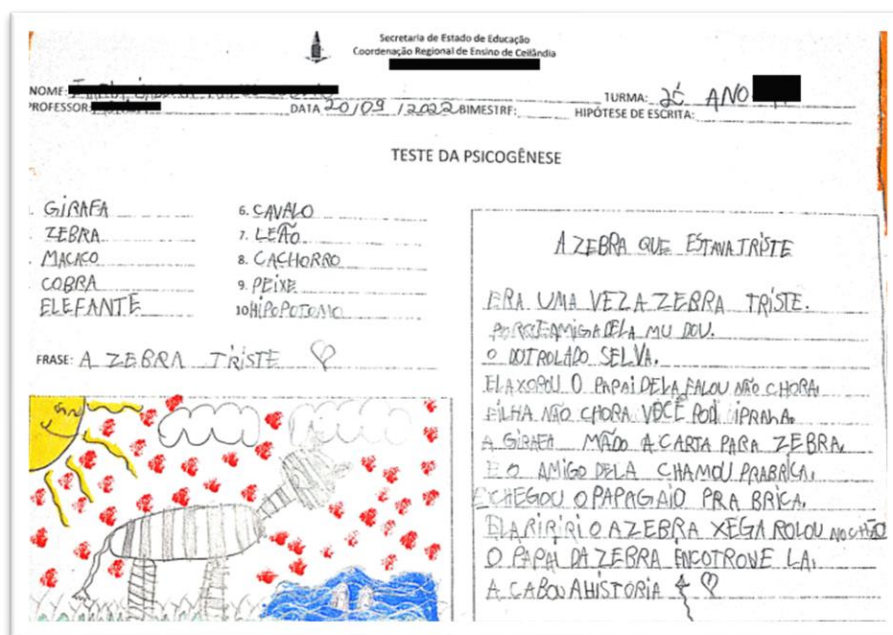 Secretaria de Estado de Educação
Coordenação Regional de Ensino de Ceilândia
NOME:
TURMA: 2º ANO
PROFESSOR: DATA 20/09/2022 BIMESTRE: HIPÓTESE DE ESCRITA:
TESTE DA PSICOGÊNESE
GIRAFA
ZEBRA
MACACO
COBRA
ELEFANTE
6. CAVALO
7. LEÃO
8. CACHORRO
9. PEIXE
10 HIPOPOTOMO
FRASE: A ZEBRA TRISTE
A ZEBRA QUE ESTAVA TRISTE
ERA UMA VEZ A ZEBRA TRISTE.
AMIGA DELA MU DOU.
O DOTROLADO SELVA.
ELAXOPOU O PAPAI DELA FALOU NÃO CHORA
FILHA NÃO CHORA VOCÊ PODI IPRALA.
A GIRAFA MÃDO A CARTA PARA ZEBRA.
E O AMIGO DELA CHAMOU PRABRICA.
E CHEGOU O PAPAGAIO PRA BRICA.
ELARIRIRIO AZEBRA XEGA ROLOU NO CHÃO
O PAPAI DA ZEBRA ENCOTROVE LA.
A CABOU AHISTORIA